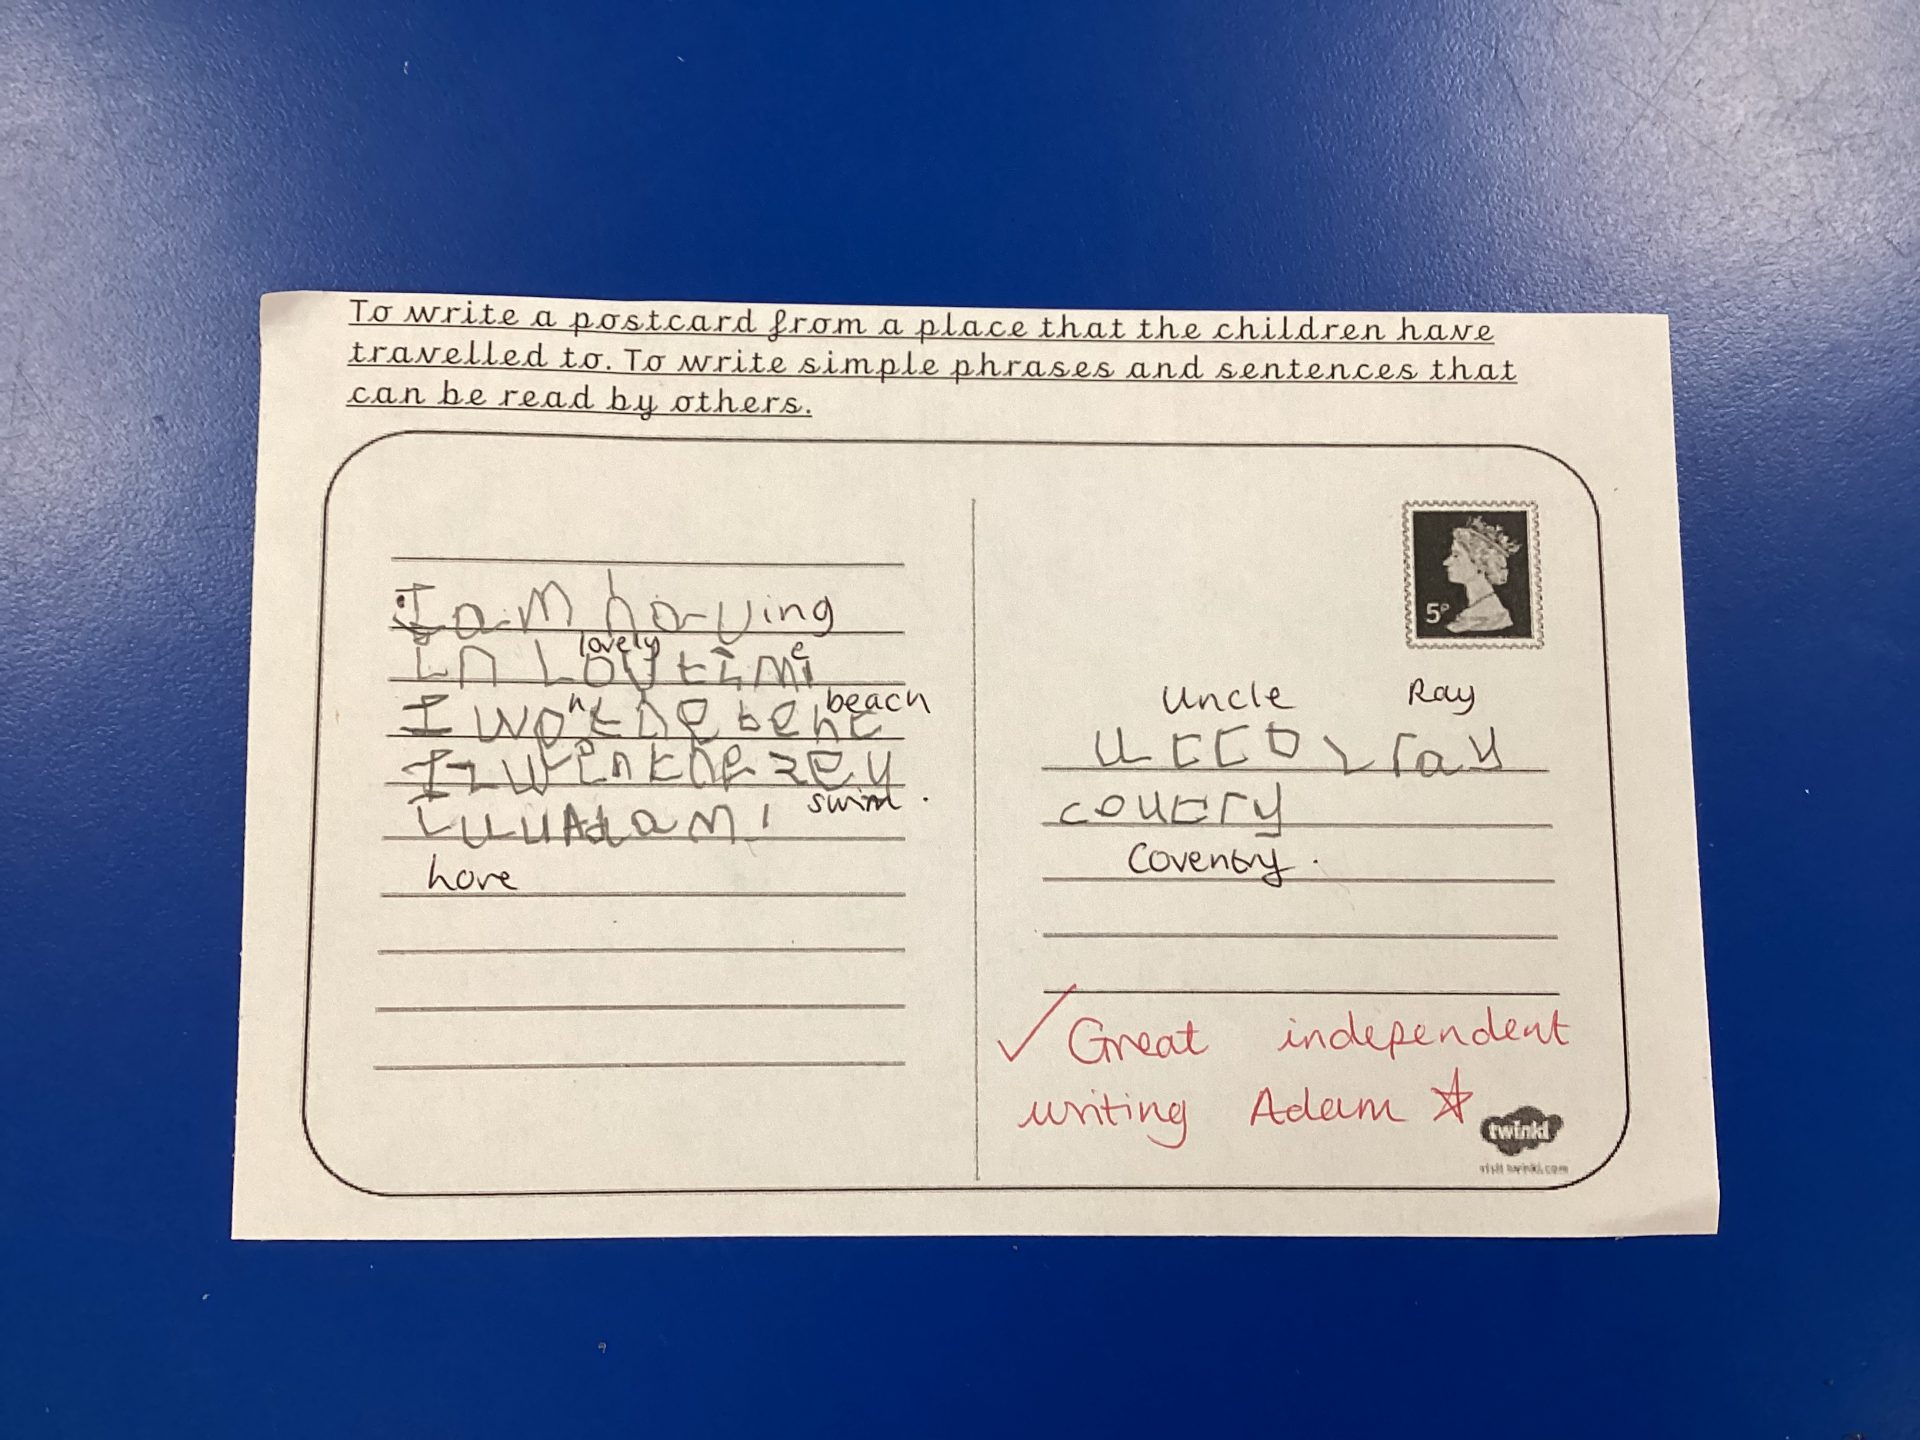 To write a postcard from a place that the children have
travelled to. To write simple phrases and sentences that
can be read by others.
I am having
lovely e
in lov tim
n beach
I wet he behc
I went he
swim.
Adam
Uncle Ray
ray
coutry
Coventry.
5P
✓ Great independent
writing Adam ☆
twinkl
visit twinkl.com